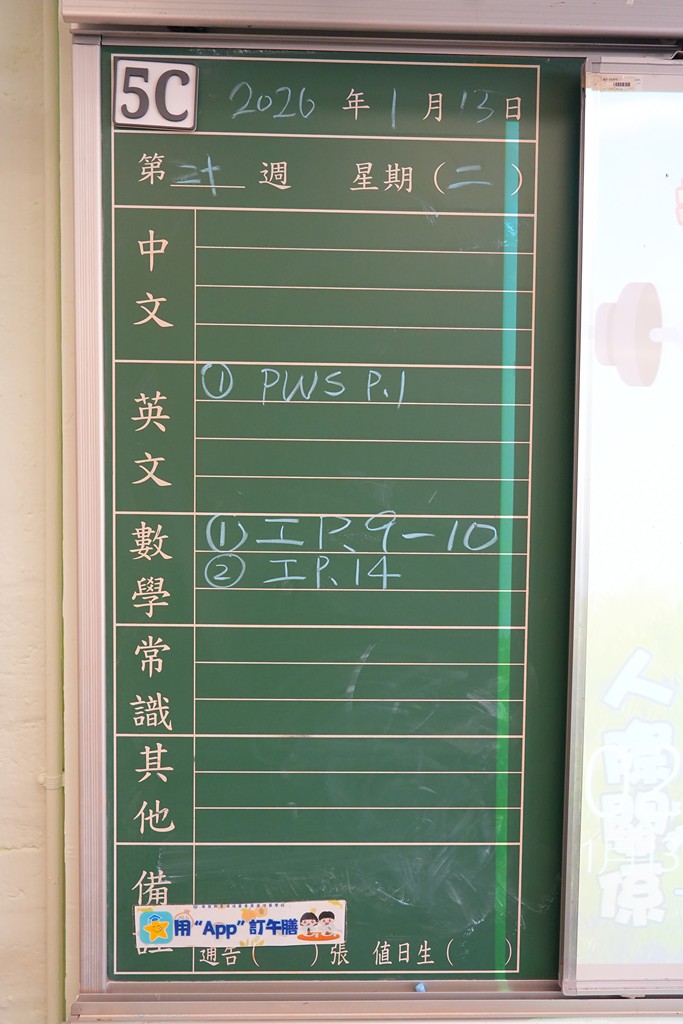 5C
2026 年 1 月 13 日
第 二十 週 星期（二）
中文
英文
① PWS P.1
數學
① 工 P、9－10
② 工 P、14
常識
其他
備
用“App”訂午膳
通告（ ）張 值日生（ ）
人際關係